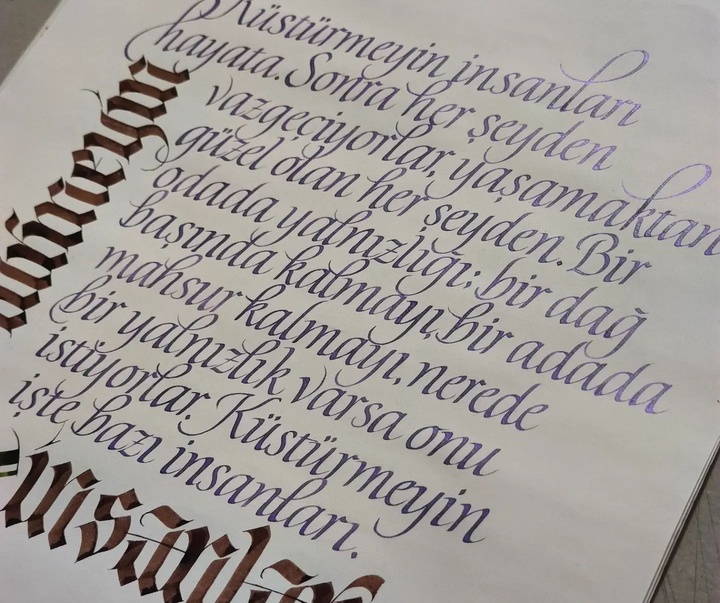 Küstürmeyin insanları
hayata. Sonra her şeyden
vazgeçiyorlar, yaşamaktan
güzel olan her şeyden. Bir
odada yalnızlığı; bir dağ
başında kalmayı, bir adada
mahsur kalmayı, nerede
bir yalnızlık varsa onu
istiyorlar. Küstürmeyin
işte bazı insanları.